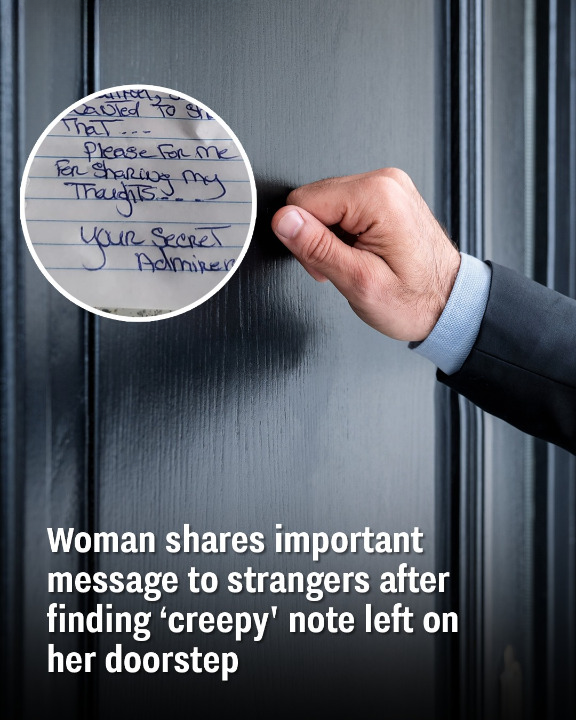 wanted to sh
That ---
Please For me
For sharing my
Thoughts....
your secret
Admirer
Woman shares important
message to strangers after
finding ‘creepy' note left on
her doorstep